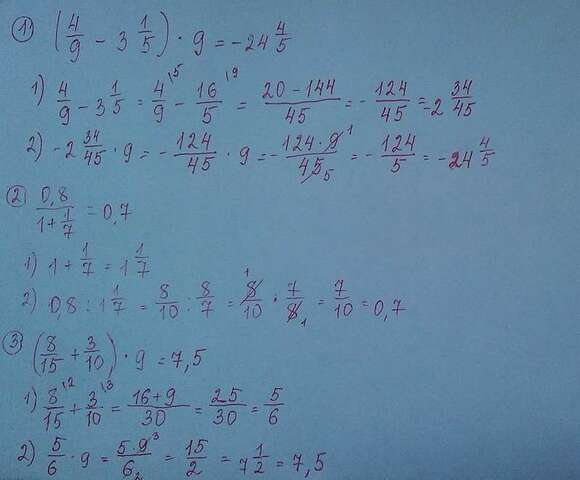 1) (4/9 - 3 1/5) · 9 = -24 4/5
1) 4/9 - 3 1/5 = 4/9 \5 - 16/5 \9 = (20-144)/45 = -124/45 = -2 34/45
2) -2 34/45 · 9 = -124/45 · 9 = -(124·9 1)/(45 5) = -124/5 = -24 4/5
2) 0,8/(1+1/7) = 0,7
1) 1 + 1/7 = 1 1/7
2) 0,8 : 1 1/7 = 8/10 : 8/7 = 1 8/10 · 7/8 1 = 7/10 = 0,7
3) (8/15 + 3/10) · 9 = 7,5
1) 8/15 \2 + 3/10 \3 = (16+9)/30 = 25/30 = 5/6
2) 5/6 · 9 = (5·9 3)/(6 2) = 15/2 = 7 1/2 = 7,5